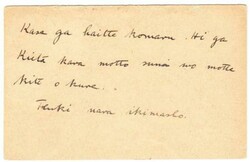 Kase ga haitte komaru. Hi ga
Kiita kara motto sumi wo motte
kite o kure..
Tsuki nara ikimasho.